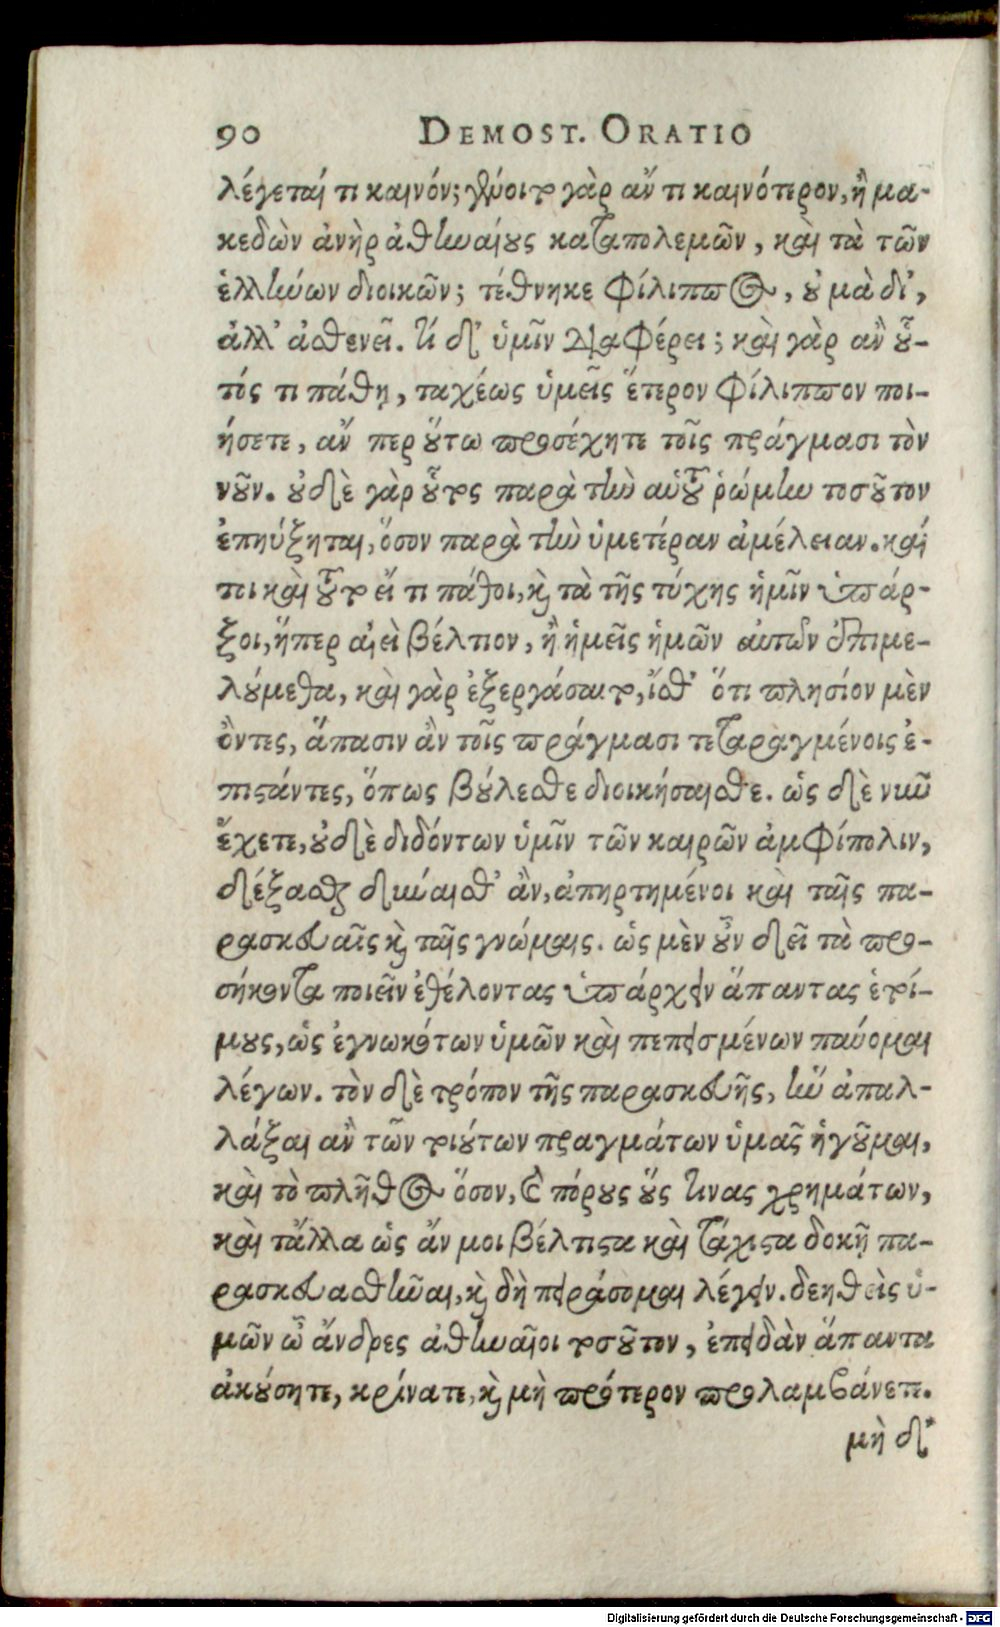 90 DEMOST. ORATIO
λέγεταί τι καινόν; γένοιτο γὰρ ἄν τι καινότερον, ἢ μα-
κεδὼν ἀνὴρ ἀθηναίους καταπολεμῶν, καὶ τὰ τῶν
ἑλλήνων διοικῶν; τέθνηκε φίλιππος, οὐ μὰ δί',
ἀλλ' ἀσθενεῖ. τί δ' ὑμῖν διαφέρει; καὶ γὰρ ἂν οὗ-
τός τι πάθῃ, ταχέως ὑμεῖς ἕτερον φίλιππον ποι-
ήσετε, ἄν περ οὕτω προσέχητε τοῖς πράγμασι τὸν
νῦν. οὐδὲ γὰρ οὗτος παρὰ τὴν αὑτοῦ ῥώμην τοσοῦτον
ἐπηύξηται, ὅσον παρὰ τὴν ὑμετέραν ἀμέλειαν. καί
τοι καὶ τοῦτο εἴ τι πάθοι, καὶ τὰ τῆς τύχης ἡμῖν ὑπάρ-
ξοι, ἥπερ αἰεὶ βέλτιον, ἢ ἡμεῖς ἡμῶν αὐτῶν ἐπιμε-
λούμεθα, καὶ γὰρ ἐξεργάσαιτο, ἴσθ' ὅτι πλησίον μὲν
ὄντες, ἅπασιν ἂν τοῖς πράγμασι τεταραγμένοις ἐ-
πιστάντες, ὅπως βούλεσθε διοικήσαισθε. ὡς δὲ νῦν
ἔχετε, οὐδὲ διδόντων ὑμῖν τῶν καιρῶν ἀμφίπολιν,
δέξασθαι δύναισθ' ἂν, ἀπηρτημένοι καὶ ταῖς πα-
ρασκευαῖς καὶ ταῖς γνώμαις. ὡς μὲν οὖν δεῖ τὰ προ-
σήκοντα ποιεῖν ἐθέλοντας ὑπάρχειν ἅπαντας ἑτοί-
μους, ὡς ἐγνωκότων ὑμῶν καὶ πεπεισμένων παύομαι
λέγων. τὸν δὲ τρόπον τῆς παρασκευῆς, ἣν ἀπαλ-
λάξαι ἂν τῶν τοιούτων πραγμάτων ὑμᾶς ἡγοῦμαι,
καὶ τὸ πλῆθος ὅσον, καὶ πόρους οὕς τινας χρημάτων,
καὶ τἄλλα ὡς ἄν μοι βέλτιστα καὶ τάχιστα δοκῇ πα-
ρασκευασθῆναι, καὶ δὴ πειράσομαι λέγειν. δεηθεὶς ὑ-
μῶν ὦ ἄνδρες ἀθηναῖοι τοσοῦτον, ἐπειδὰν ἅπαντα
ἀκούσητε, κρίνατε, καὶ μὴ πρότερον προλαμβάνετε.
μὴ δ'
Digitalisierung gefördert durch die Deutsche Forschungsgemeinschaft - DFG